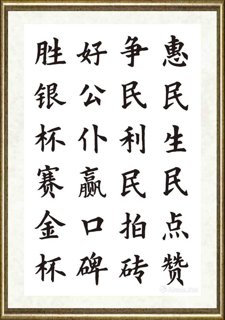 惠民生民点赞
争民利民拍砖
好公仆赢口碑
胜银杯赛金杯